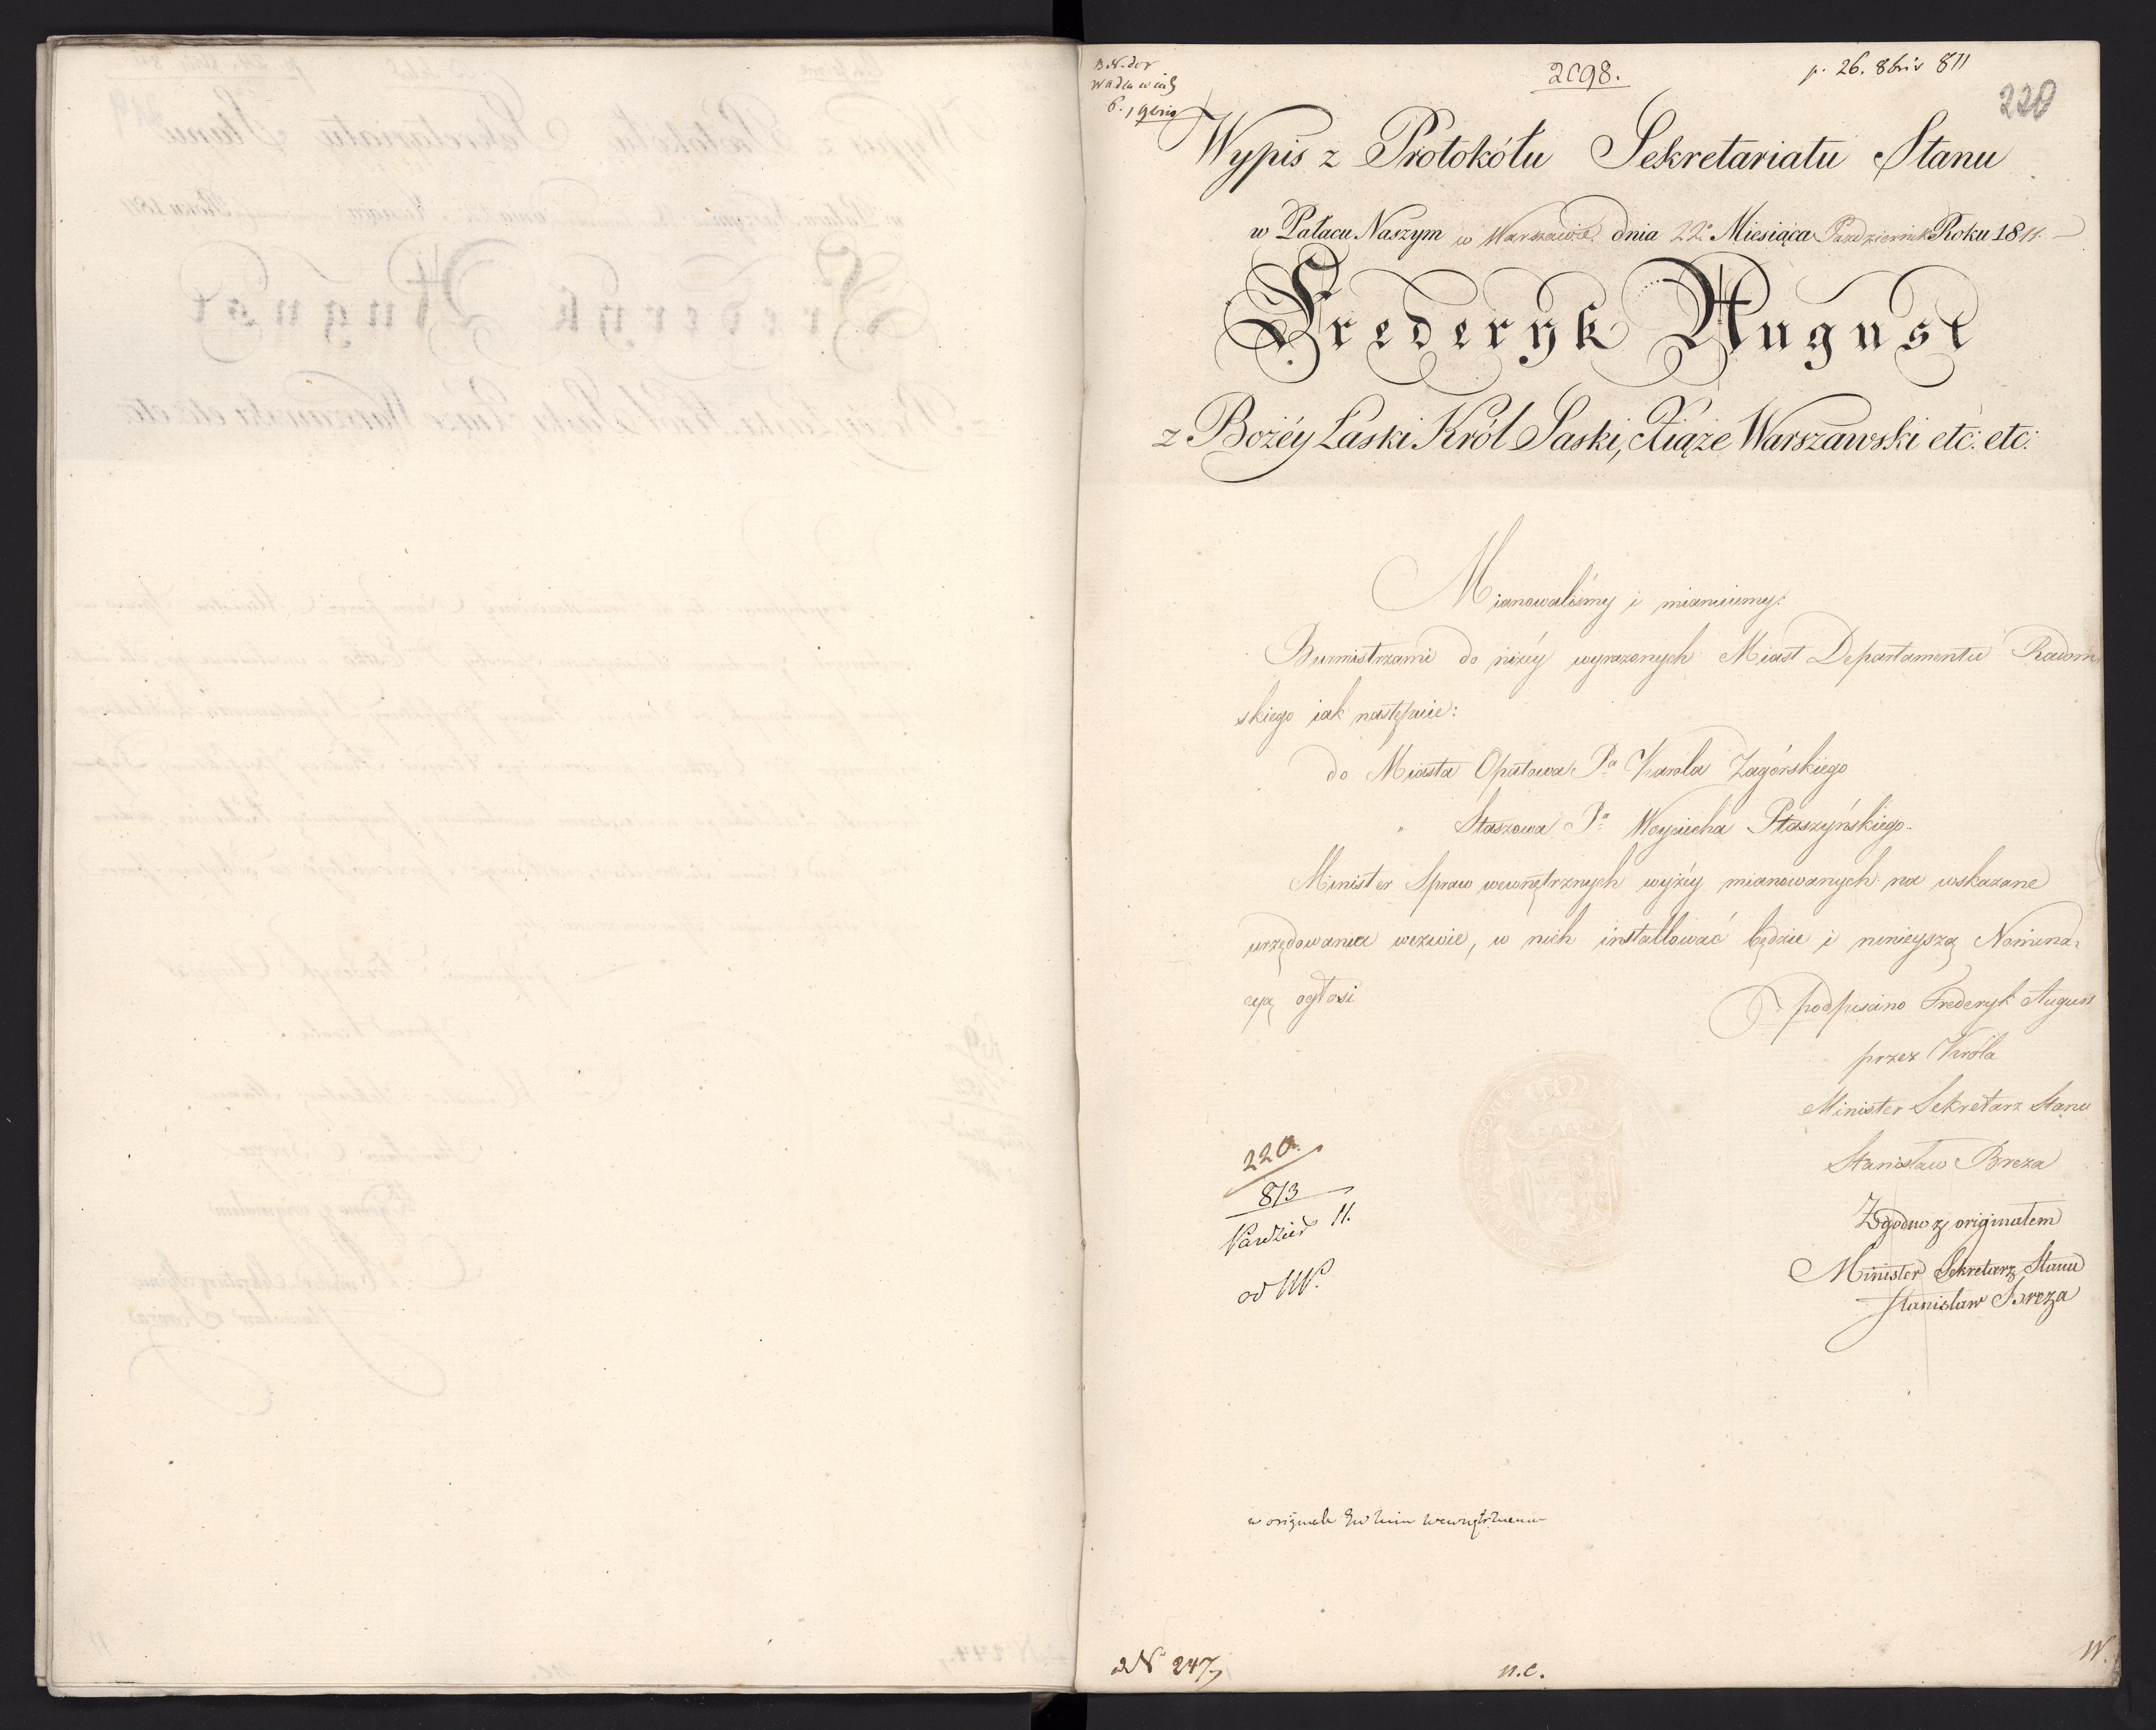 2098.
p. 26. 8bris 811
220
Wypis z Protokółu Sekretariatu Stanu
w Pałacu Naszym w Warszawie dnia 22º Miesiąca Październik Roku 1811.
Frederyk August
z Bożéy Łaski Król Saski, Xiąże Warszawski etc: etc:
Mianowaliśmy i mianuiemy:
Burmistrzami do niżéy wyrażonych Miast Departamentu Radom
skiego iak następuie:
do Miasta Opatowa Pa Karola Zagórskiego
" Staszowa Pa Woyciecha Ptaszyńskiego.
Minister Spraw wewnętrznych wyżéy mianowanych na wskazane
urzędowania wezwie, w nich installować będzie i ninieyszą Nomina-
cyą ogłosi
podpisano Frederyk August
przez Króla
Minister Sekretarz Stanu
Stanisław Breza
220.
813
Paździer 11.
od MW.
Zgodno z originałem
Minister Sekretarz Stanu
Stanisław Breza
w originale
N 247,
n.c.
W.